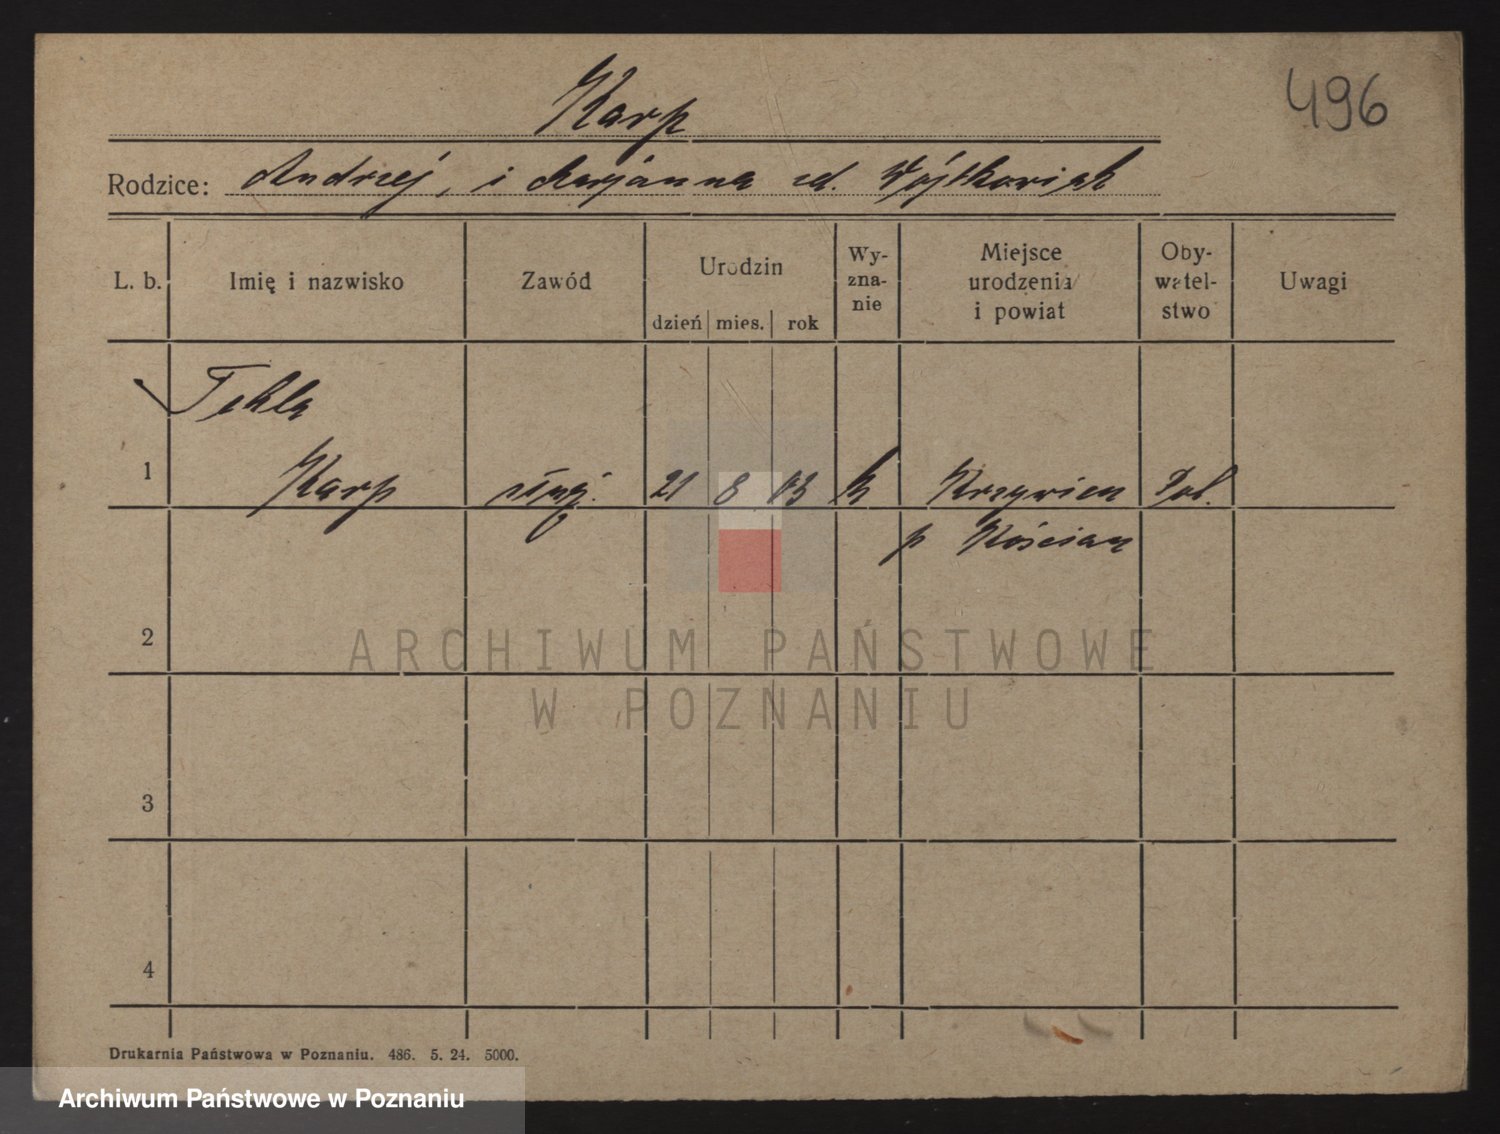 496
Karp
Rodzice: Andrzej, i Marjanna zd. Wójtkowiak
L. b. Imię i nazwisko Zawód Urodzin dzień mies. rok Wy-zna-nie Miejsce urodzenia i powiat Oby-watel-stwo Uwagi
Tekla
1 Karp służ. 21 8 03 k Krzywień Pol.
p Kościan
2
ARCHIWUM PAŃSTWOWE
W POZNANIU
3
4
Drukarnia Państwowa w Poznaniu. 486. 5. 24. 5000.
Archiwum Państwowe w Poznaniu